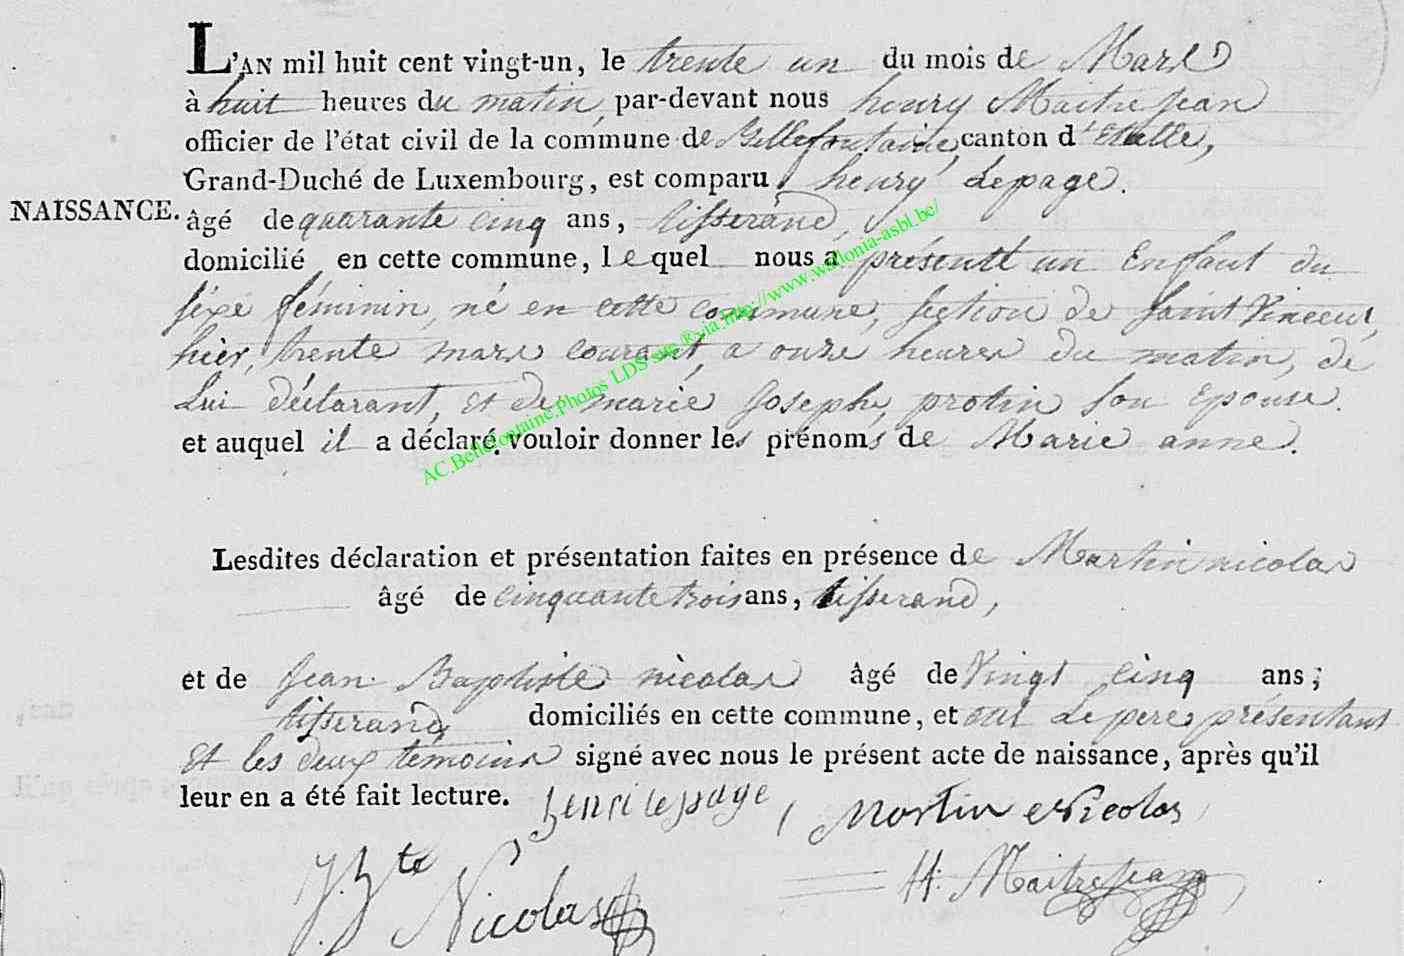 L'AN mil huit cent vingt-un, le trente un du mois de Mars
à huit heures du matin, par-devant nous henry Maitrejean
officier de l'état civil de la commune de Bellefontaine, canton d'Etalle,
Grand-Duché de Luxembourg, est comparu henry Lepage.
NAISSANCE. âgé de quarante cinq ans, tisserand,
domicilié en cette commune, lequel nous a présenté un Enfant du
séxe féminin, né en cette commune, section de saint Vincent,
hier, trente mars courant, a onze heures du matin, de
Lui déclarant, et de marie Josephe, protin son Epouse.
et auquel il a déclaré vouloir donner les prénoms de Marie anne.
AC.Bellefontaine.Photos LDS sur ®via.http://www.wallonia-asbl.be/
Lesdites déclaration et présentation faites en présence de Martin nicolas
âgé de cinquante trois ans, tisserand,
et de Jean Baptiste nicolas âgé de Vingt cinq ans;
tisserand, domiciliés en cette commune, et ont Le pere présentant
Et les deux temoins signé avec nous le présent acte de naissance, après qu'il
leur en a été fait lecture. henri lepage, Martin Nicolas
J. Bte Nicolas H. Maitrejean